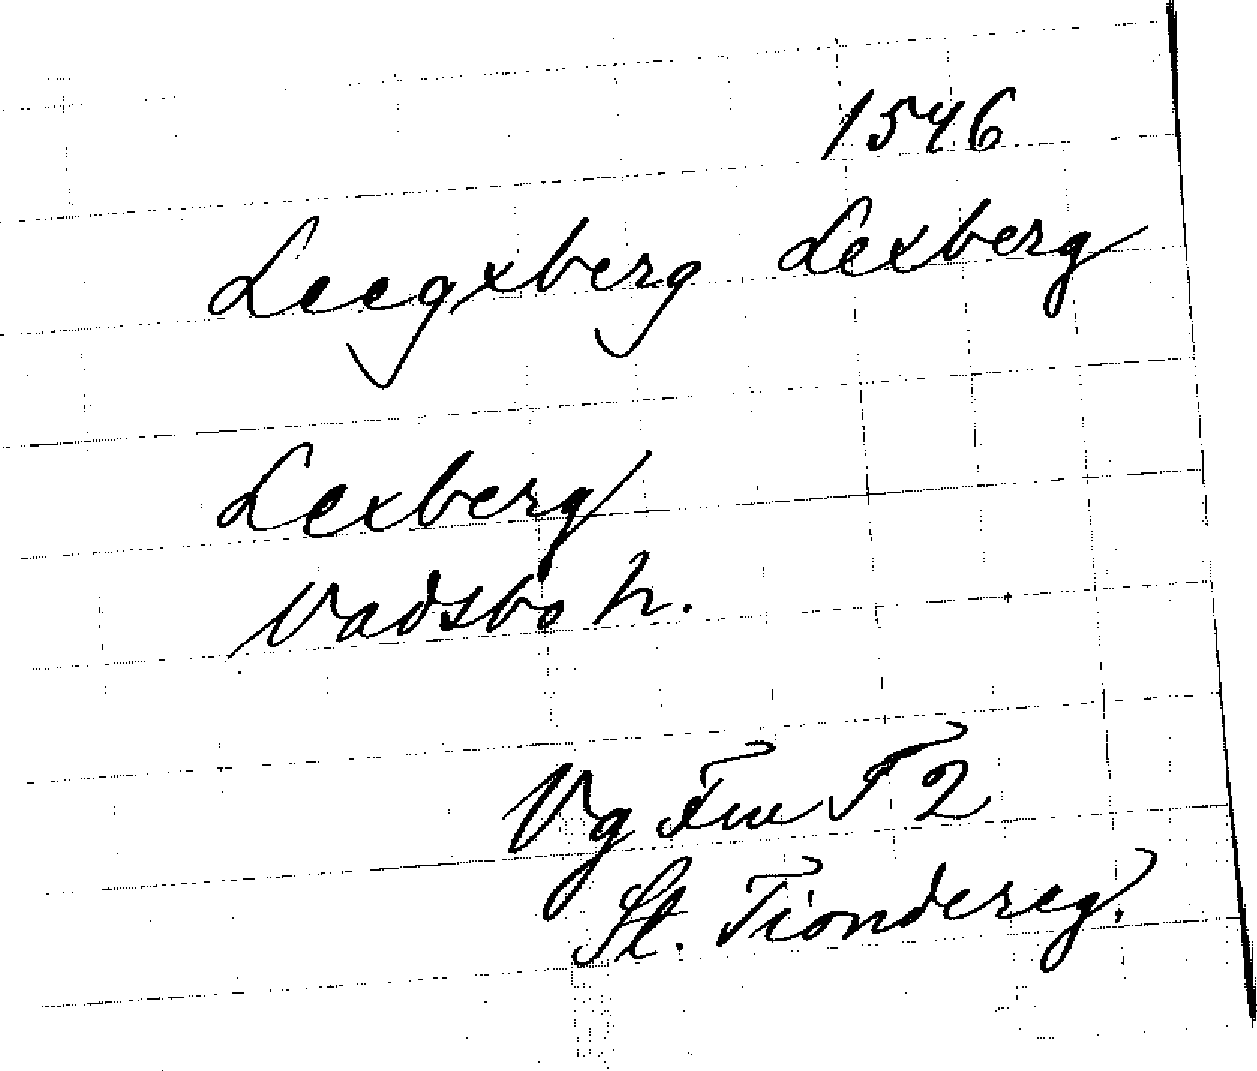 1546
Leegxberg Lexberg
Lexberg
Vadsbo h.
Vg T 2
St. Tiondereg.